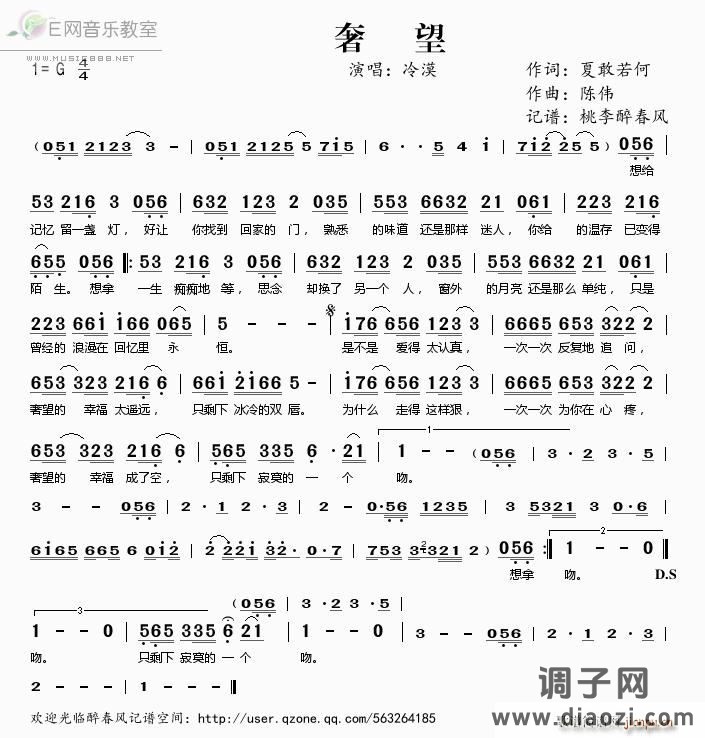 E网音乐教室
WWW.MUSIC8888.NET
奢 望
1=G 4/4
演唱：冷漠
作词：夏敢若何
作曲：陈伟
记谱：桃李醉春风
(051 2123 3 - | 051 2125 5 715 | 6 · · 5 4 i | 7i2 25 5) 056 |
想给
53 216 3 056 | 632 123 2 035 | 553 6632 21 061 | 223 216
记忆 留一盏 灯，好让 你找到 回家的 门，熟悉 的味道 还是那样 迷人，你给 的温存 已变得
655 056 |: 53 216 3 056 | 632 123 2 035 | 553 6632 21 061 |
陌 生。想拿 一生 痴痴地 等，思念 却换了 另一个 人，窗外 的月亮 还是那么 单纯，只是
223 66i i66 065 | 5 - - - | i76 656 123 3 | 6665 653 322 2 |
曾经的 浪漫在 回忆里 永 恒。 是不是 爱得 太认真，一次一次 反复地 追 问，
653 323 216 6 | 66i 2i66 5 5 | i76 656 123 3 | 6665 653 322 2 |
奢望的 幸福 太遥远， 只剩下 冰冷的双 唇。 为什么 走得 这样狠， 一次一次 为你在 心 疼，
653 323 216 6 | 565 335 6 · 21 | 1 - - (056 | 3 · 2 3 · 5 |
1
奢望的 幸福 成了空， 只剩下 寂寞的 一 个 吻。
3 - - 056 | 2 · 1 2 · 3 | 2 - 0·56 1235 | 3 5321 3 0·6 |
6i65 665 6 0i2 | 2 22i 32· 0·7 | 753 3321 2) 056 :| 1 - - 0 |
2
想拿 吻。 D.S
3
(056 | 3 · 2 3 · 5)
1 - - 0 | 565 335 6 21 | 1 - - 0 | 3 - - 056 | 2 · 1 2 · 3 |
吻。 只剩下 寂寞的 一 个 吻。
2 - - 1 | 1 - - - ||
欢迎光临醉春风记谱空间：http://user.qzone.qq.com/563264185
调子网
www.diaozi.com